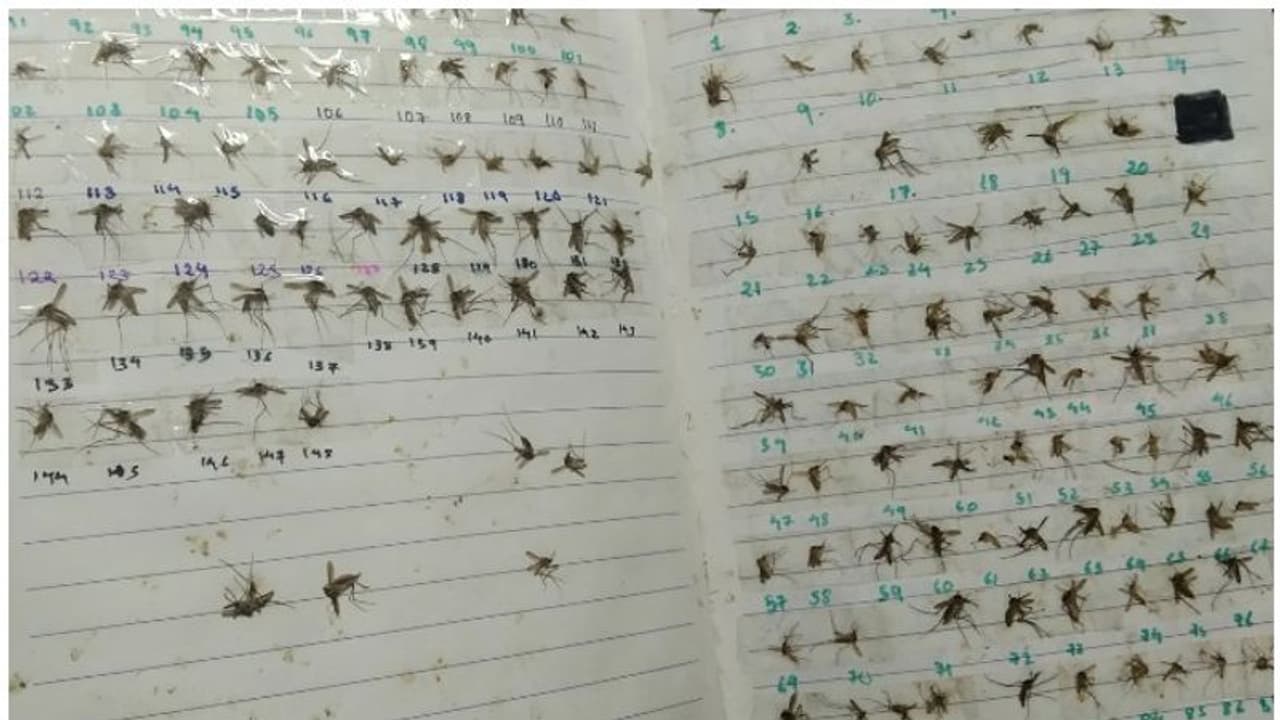 92 93 94 95 96 97 98 99 100 101
103 104 105 106 107 108 109 110 111
112 113 114 115 116 117 118 119 120 121
122 123 124 125 126 128 130
133 134 135 136 137 138 139 140 141 142 143
144 145 146 147 148
1 2 3.
8. 9. 10. 11 12 13 14
15 16. 17. 18 19 20
21 22 23 24 25 26 27 28 29
30 31 32 38
39 40 41 42 43 44 45 46
47 48 49 60 51 52 53 54 55 56
57 58 59 60 61 62 63 64 65 66 67
69 70 71 72 73 74 75 76
85 86